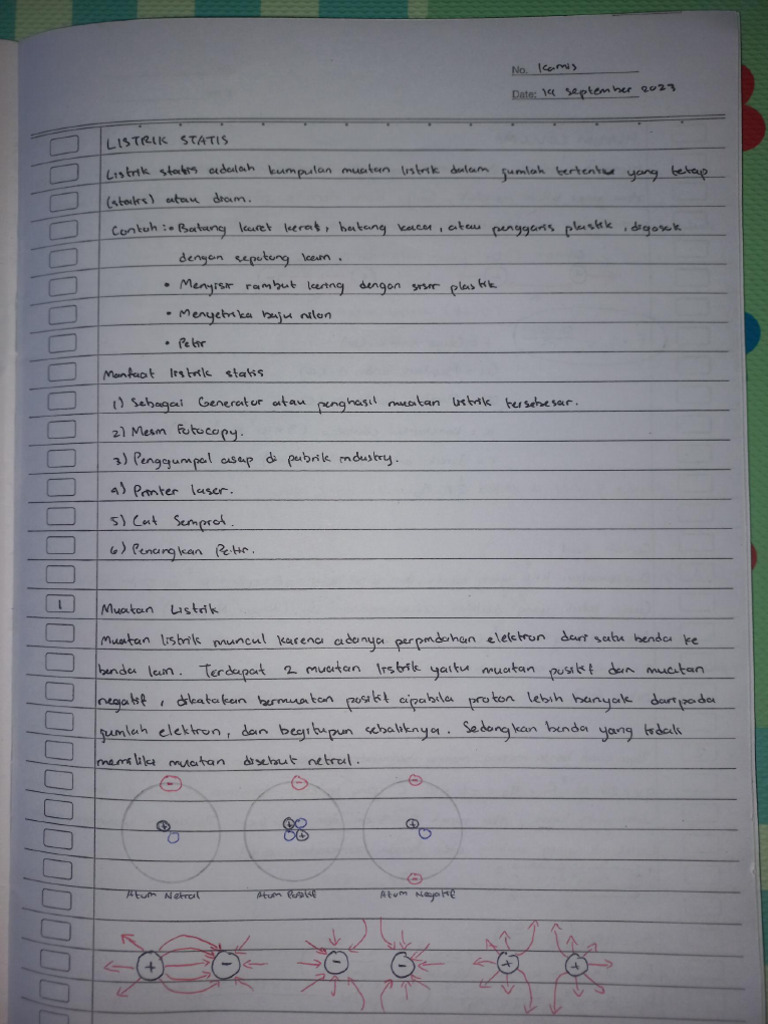 No. Kamis
Date: 14 September 2023
LISTRIK STATIS
Listrik statis adalah kumpulan muatan listrik dalam jumlah tertentu yang tetap
(statis) atau diam.
Contoh : • Batang karet keras, batang kaca, atau penggaris plastik, digosok
dengan sepotong kain.
• Menyisir rambut kering dengan sisir plastik
• Menyetrika baju nilon
• Petir
Manfaat listrik statis
1) Sebagai Generator atau penghasil muatan listrik terbesar.
2) Mesin Fotocopy.
3) Penggumpal asap di pabrik industry.
4) Printer laser.
5) Cat Semprot.
6) Penangkan Petir.
1 Muatan Listrik
Muatan listrik muncul karena adanya perpindahan elektron dari satu benda ke
benda lain. Terdapat 2 muatan listrik yaitu muatan positif dan muatan
negatif, dikatakan bermuatan positif apabila proton lebih banyak daripada
jumlah elektron, dan begitupun sebaliknya. Sedangkan benda yang tidak
memiliki muatan disebut netral.
- - -
+ + + +
-
Atom Netral Atom Positif Atom Negatif
+ - - - + +